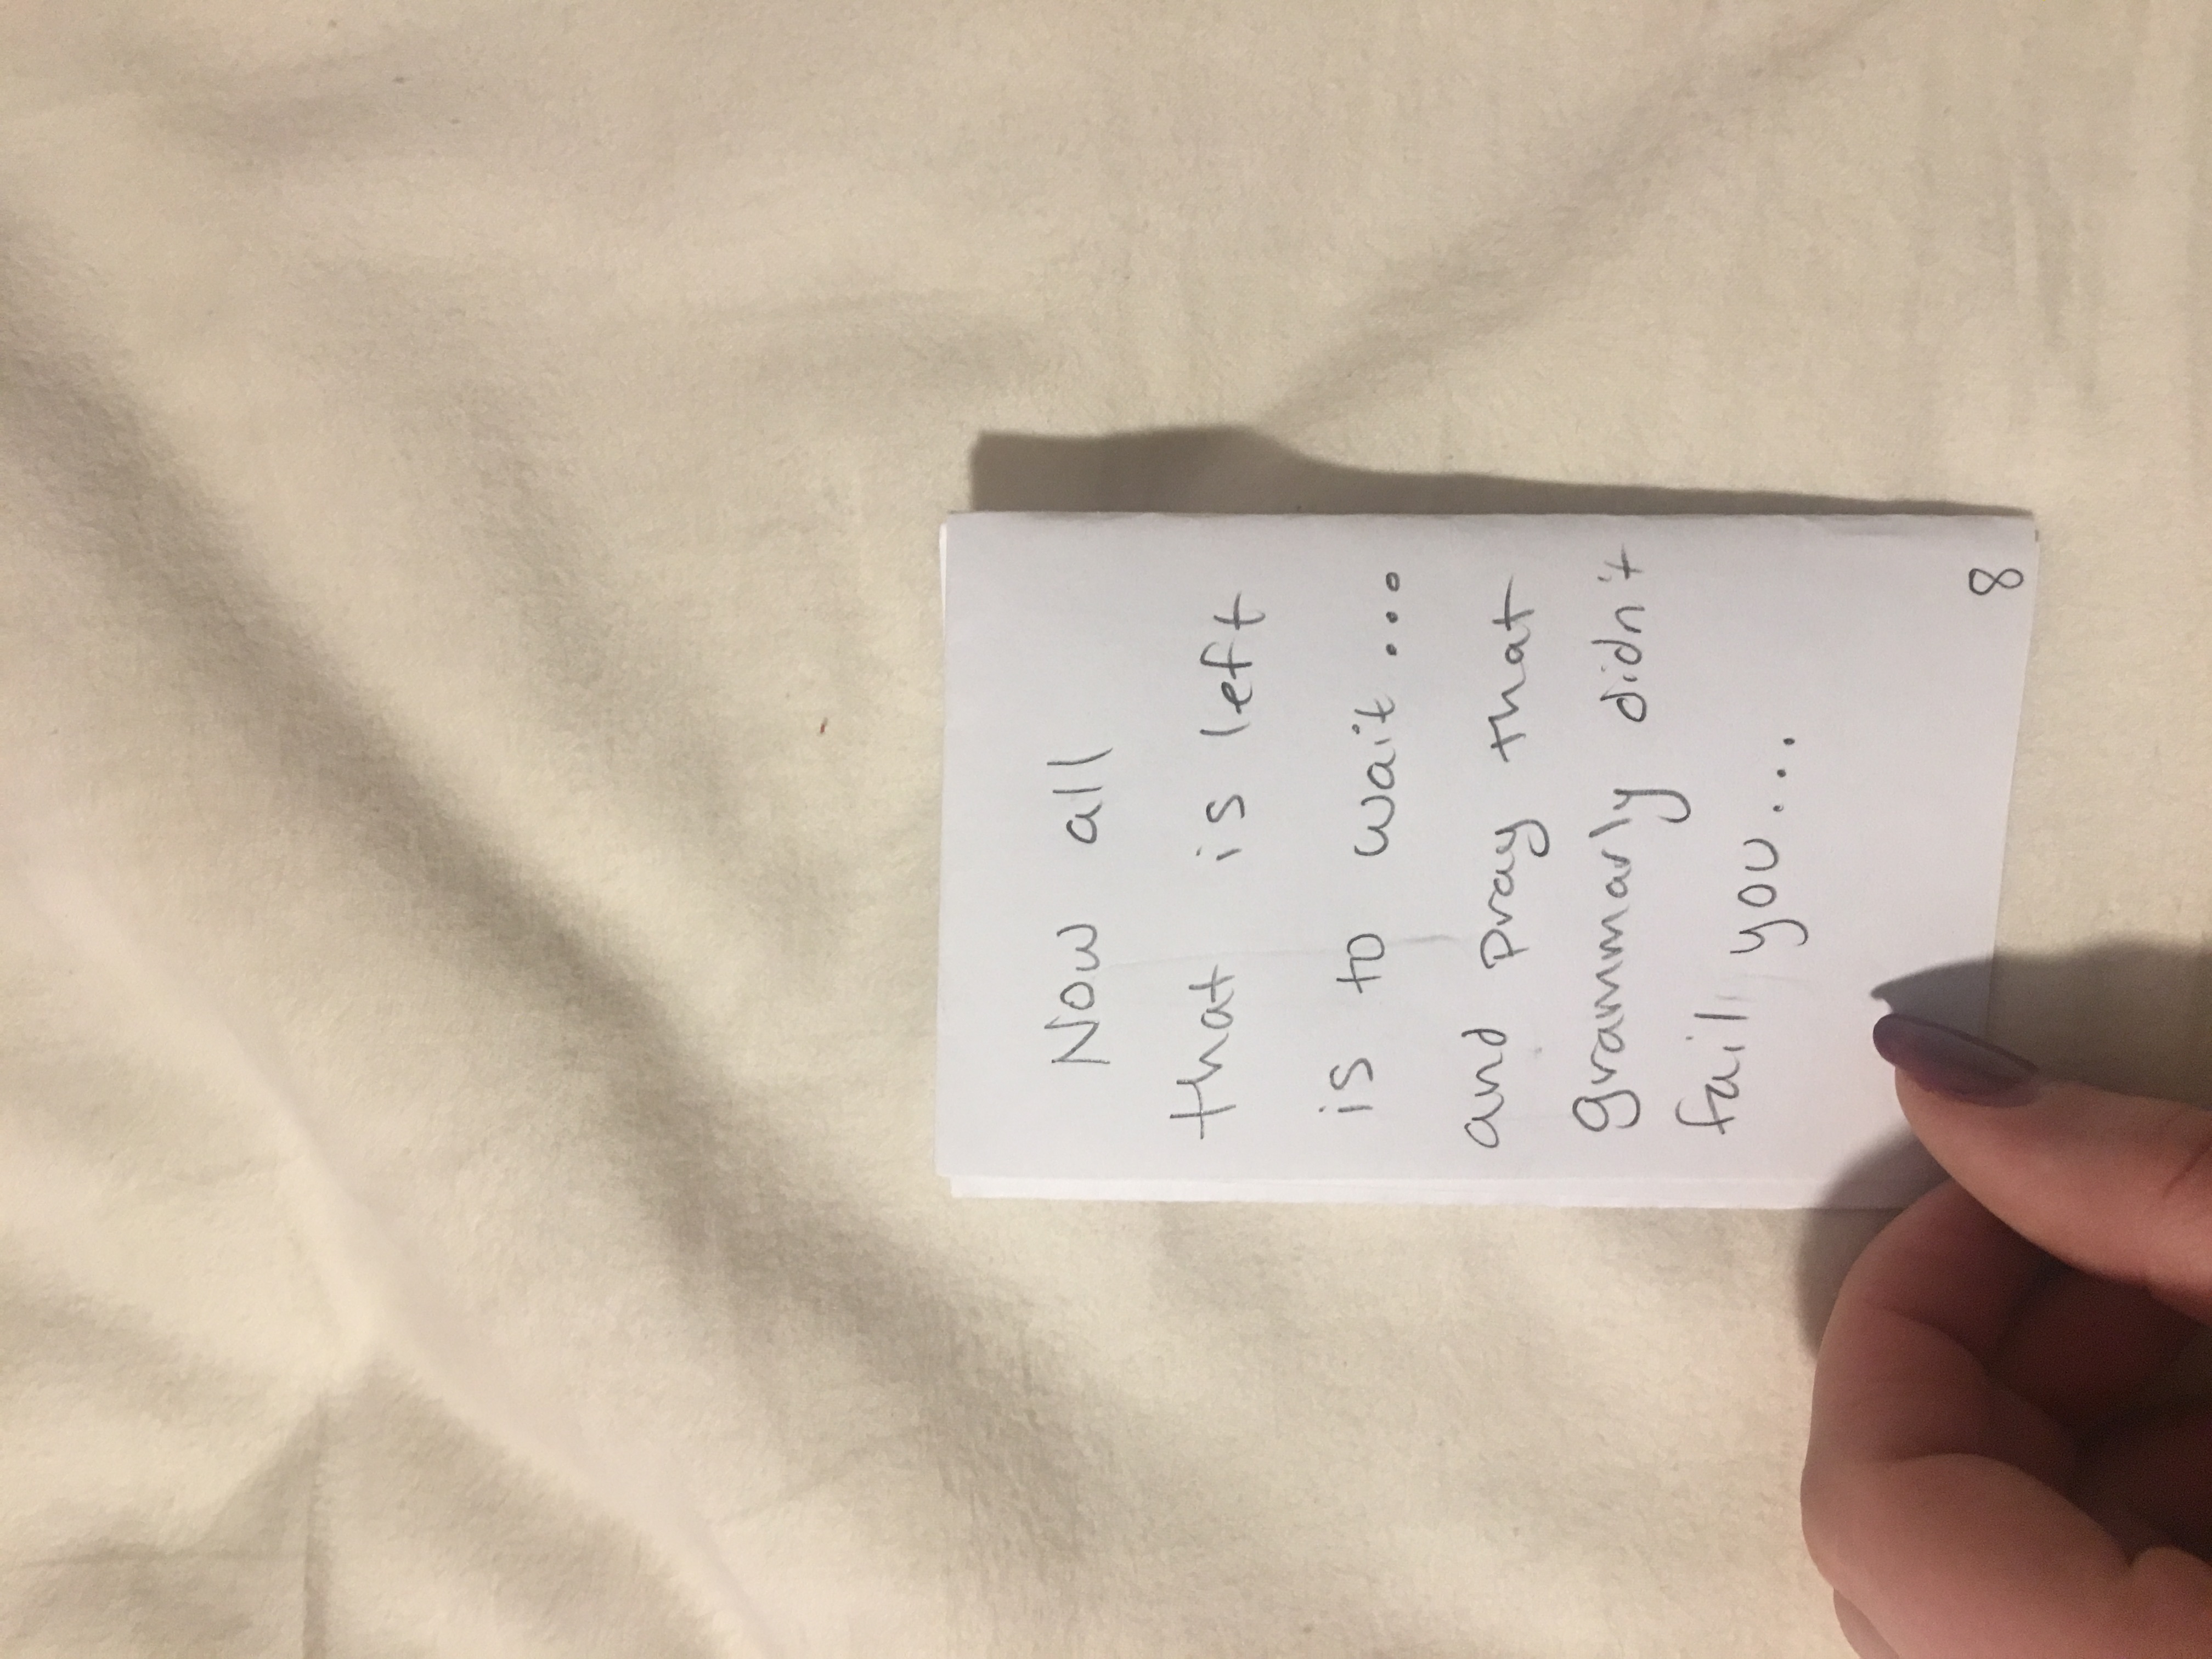 Now all
that is left
is to wait...
and pray that
grammarly didn't
fail you...
8